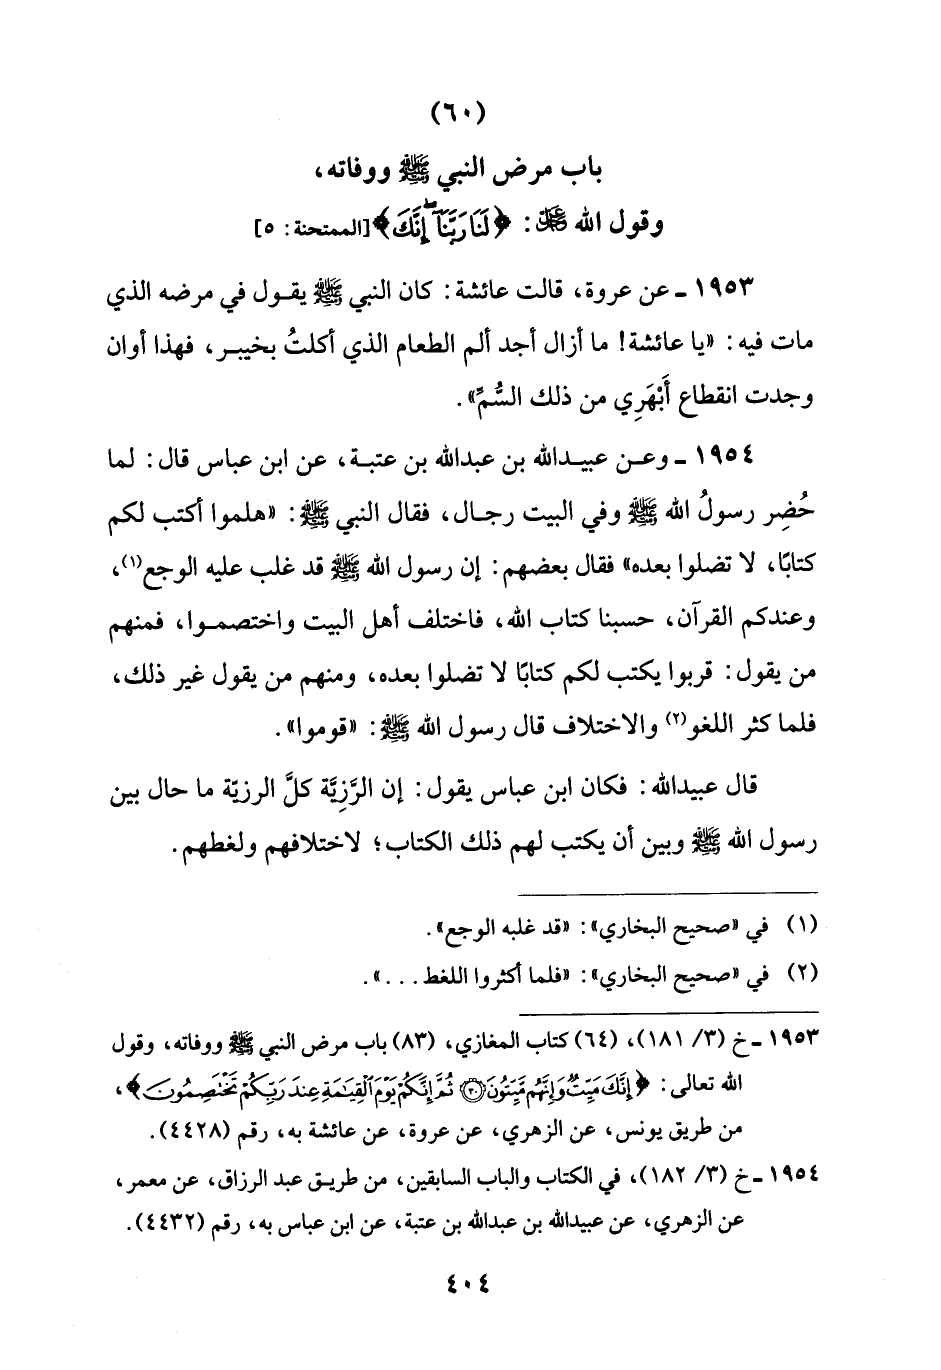 (٦٠)
باب مرض النبي ﷺ ووفاته،
وقول الله ﷻ: ﴿لَنَا رَبَّنَآ إِنَّكَ﴾ [الممتحنة: ٥]
١٩٥٣ ـ عن عروة، قالت عائشة: كان النبي ﷺ يقـول في مرضه الذي
مات فيه: «يا عائشة! ما أزال أجد ألم الطعام الذي أكلتُ بخيبـر، فهذا أوان
وجدت انقطاع أَبْهَرِي من ذلك السُّمِّ».
١٩٥٤ ـ وعـن عبيـدالله بن عبدالله بن عتبـة، عن ابن عباس قال: لما
حُضِر رسولُ الله ﷺ وفي البيت رجـال، فقال النبي ﷺ: «هلموا أكتب لكم
كتابًا، لا تضلوا بعده» فقال بعضهم: إن رسول الله ﷺ قد غلب عليه الوجع(١)،
وعندكم القرآن، حسبنا كتاب الله، فاختلف أهل البيت واختصمـوا، فمنهم
من يقول: قربوا يكتب لكم كتابًا لا تضلوا بعده، ومنهم من يقول غير ذلك،
فلما كثر اللغو(٢) والاختلاف قال رسول الله ﷺ: «قوموا».
قال عبيدالله: فكان ابن عباس يقول: إن الرَّزِيَّة كلَّ الرزيّة ما حال بين
رسول الله ﷺ وبين أن يكتب لهم ذلك الكتاب؛ لاختلافهم ولغطهم.
(١) في «صحيح البخاري»: «قد غلبه الوجع».
(٢) في «صحيح البخاري»: «فلما أكثروا اللغط...».
١٩٥٣ ـ خ (٣/ ١٨١)، (٦٤) كتاب المغازي، (٨٣) باب مرض النبي ﷺ ووفاته، وقول
الله تعالى: ﴿إِنَّكَ مَيِّتٌ وَإِنَّهُم مَّيِّتُونَ ٣٠ ثُمَّ إِنَّكُمْ يَوْمَ ٱلْقِيَـٰمَةِ عِندَ رَبِّكُمْ تَخْتَصِمُونَ﴾،
من طريق يونس، عن الزهري، عن عروة، عن عائشة به، رقم (٤٤٢٨).
١٩٥٤ ـ خ (٣/ ١٨٢)، في الكتاب والباب السابقين، من طريـق عبد الرزاق، عن معمر،
عن الزهري، عن عبيدالله بن عبدالله بن عتبة، عن ابن عباس به، رقم (٤٤٣٢).
٤٠٤